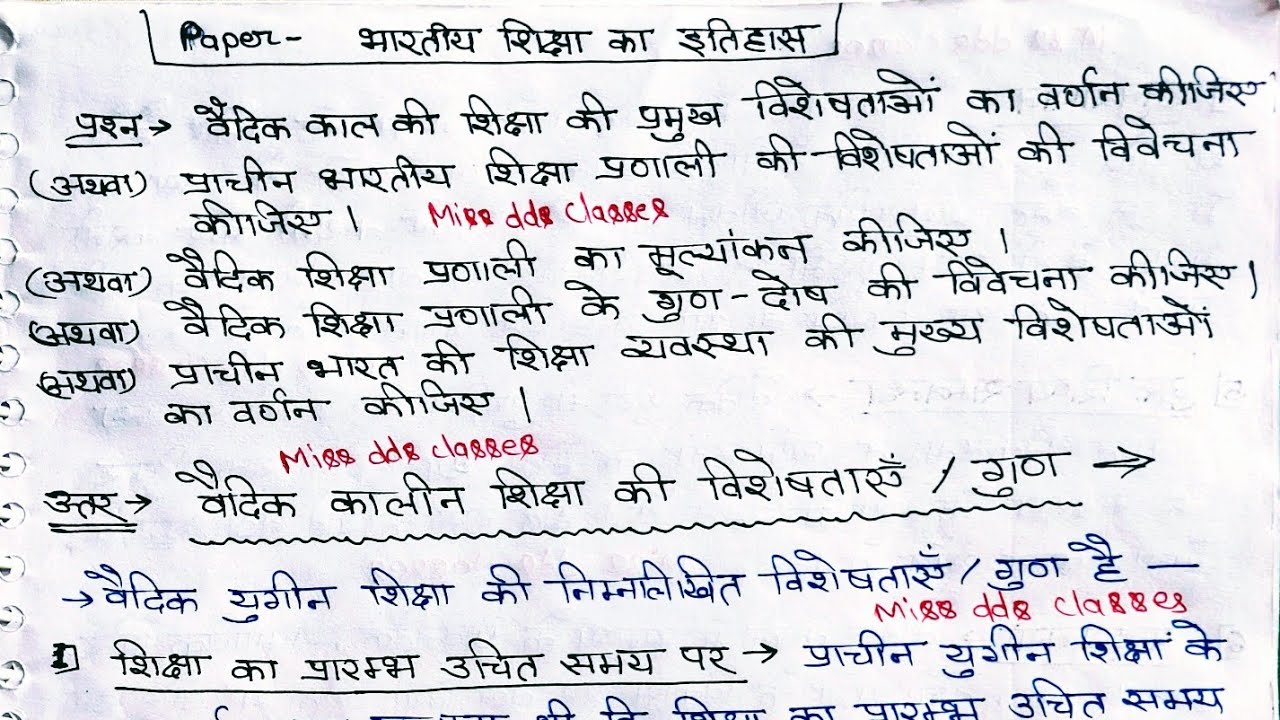 Paper- भारतीय शिक्षा का इतिहास
प्रश्न → वैदिक काल की शिक्षा की प्रमुख विशेषताओं का वर्णन कीजिए
(अथवा) प्राचीन भारतीय शिक्षा प्रणाली की विशेषताओं की विवेचना
कीजिए । Miss dds classes
(अथवा) वैदिक शिक्षा प्रणाली का मूल्यांकन कीजिए ।
(अथवा) वैदिक शिक्षा प्रणाली के गुण-दोष की विवेचना कीजिए ।
(अथवा) प्राचीन भारत की शिक्षा व्यवस्था की मुख्य विशेषताओं
का वर्णन कीजिए ।
Miss dds classes
उत्तर → वैदिक कालीन शिक्षा की विशेषताएँ / गुण →
→ वैदिक युगीन शिक्षा की निम्नलिखित विशेषताएँ / गुण है —
Miss dds classes
1] शिक्षा का प्रारम्भ उचित समय पर → प्राचीन युगीन शिक्षा के
शिक्षा का प्रारम्भ उचित समय